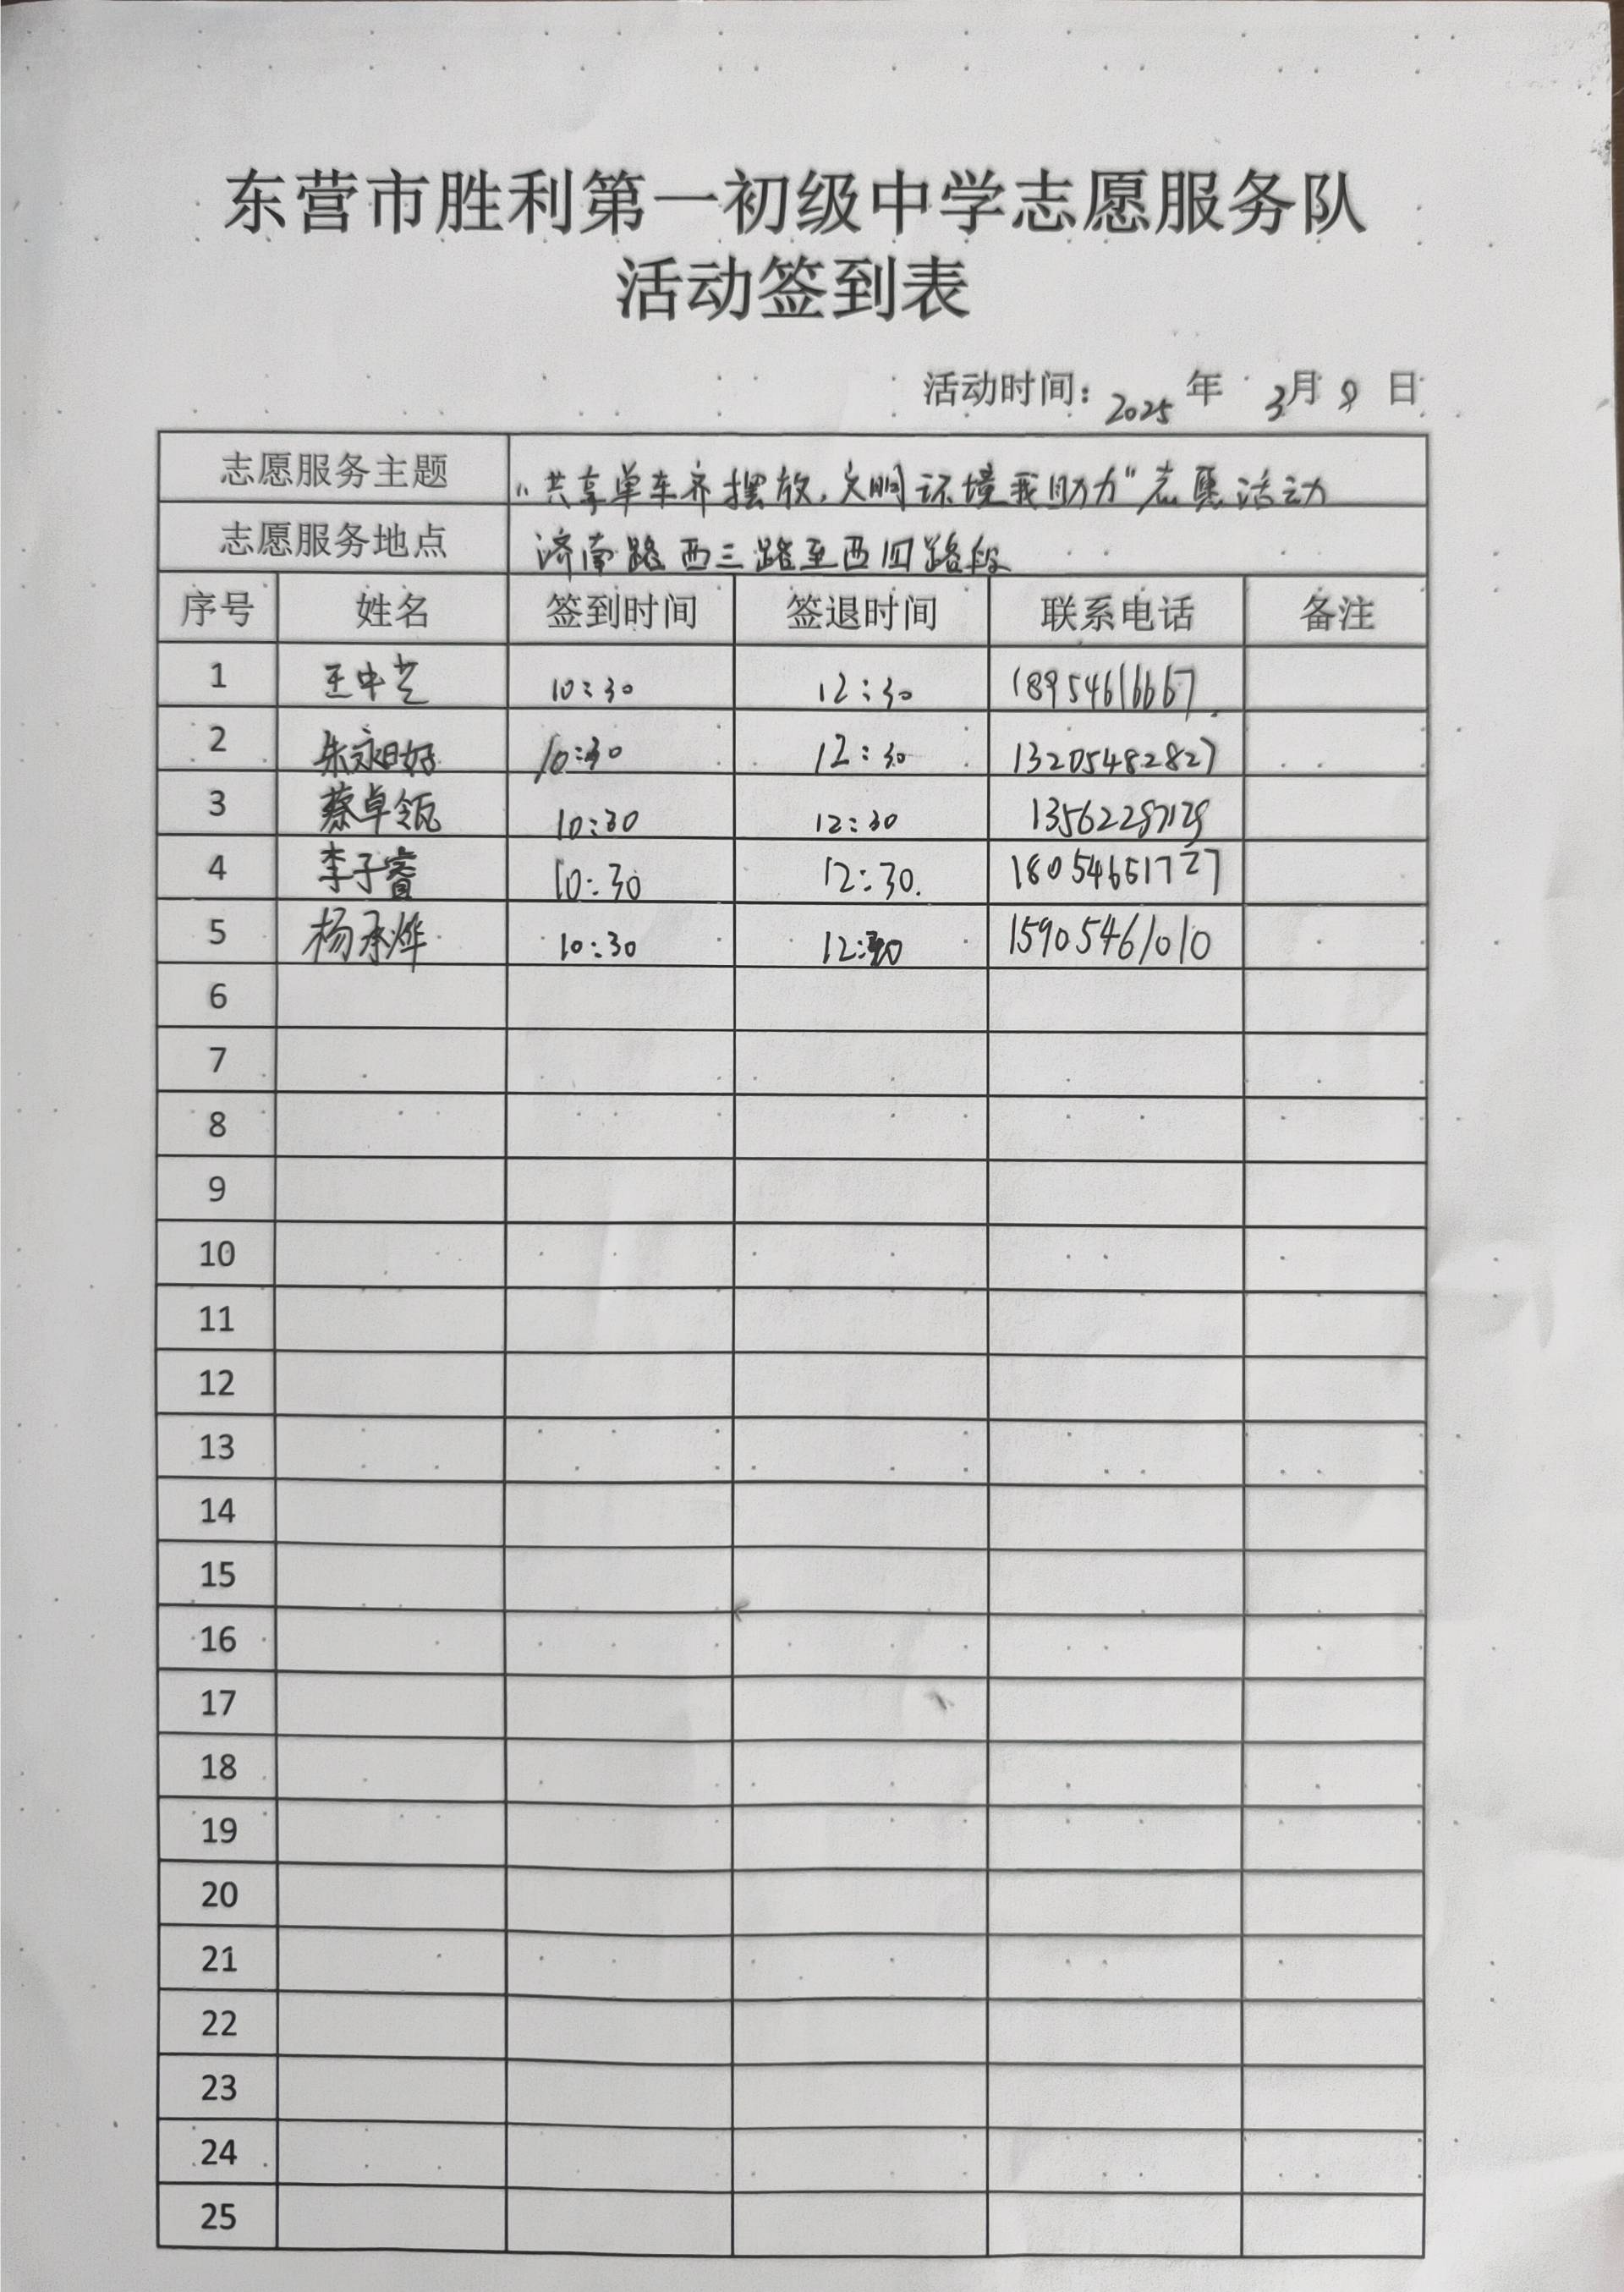 东营市胜利第一初级中学志愿服务队
活动签到表
活动时间：2025年 3月 9 日
志愿服务主题 “共享单车齐摆放,文明环境我助力”志愿活动
志愿服务地点 济南路西三路至西四路段
序号 姓名 签到时间 签退时间 联系电话 备注
1 王中兰 10:30 12:30 18954616667
2 朱永昍好 10:30 12:30 13205482827
3 蔡卓瓴 10:30 12:30
4 李子睿 10:30 12:30. 18054651727
5 杨承烨 10:30 12:30 15905461010
6
7
8
9
10
11
12
13
14
15
16
17
18
19
20
21
22
23
24
25